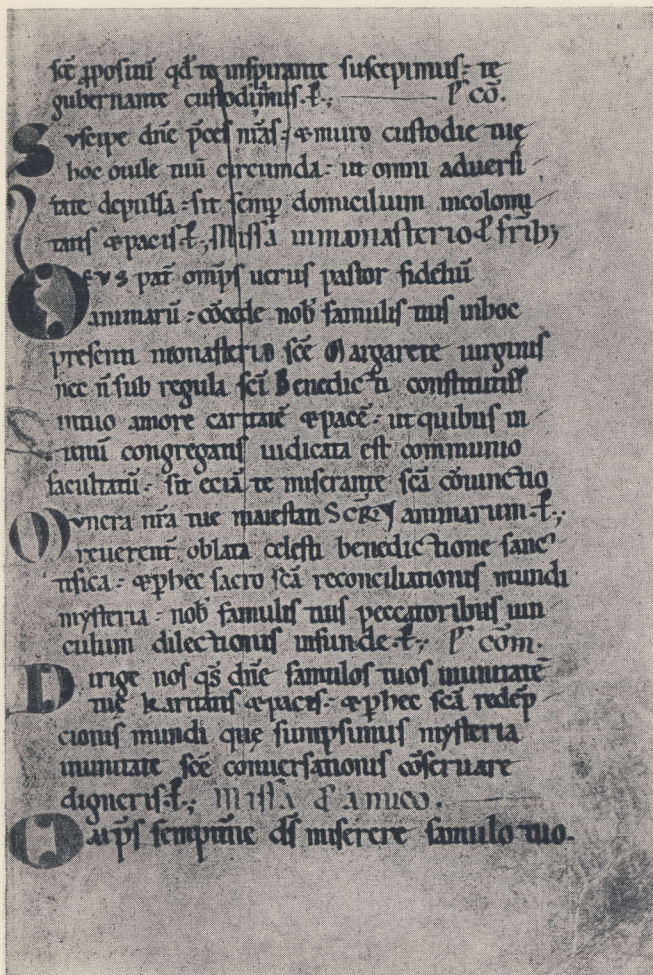 sce ꝓpositū qd̄ te inspirante suscepimus: te
gubernante custodiamus. ꝉ; Pꝰ cō.
Suscipe dn̄e p̄ces nr̄as: & muro custodie tuę
hoc ouile tuū circumda: ut omni aduersi
tate depulsa: sit semꝑ domicilium incolomi
tatis & pacis. ꝉ; Missa in monasterio ꝓ frib;
DEUS pat̄ omīps uerus pastor fideliū
animarū: cōcede nob̄ famulis tuis in hoc
presenti monasterio sc̄e Margarete uirginis
nec n̄ sub regula sc̄i Benedicti constitutis
in tuo amore caritatē & pacē: ut quibus in
unū congregatis uidicata est communio
facultatū: sit eciā te miserante sc̄a cōiunctio
Muncra nr̄a tue maiestati SCRE animarum. ꝉ;
reuerent̄ oblata celesti benedictione sanc
tifica: & ꝑ hec sacro sc̄a reconciliationis mundi
mysteria: nob̄ famulis tuis peccatoribus uin
culum dilectionis infunde. ꝉ; Pꝰ com̄.
Dirige nos qs̄ dn̄e famulos tuos in unitatē
tue karitatis & pacis: & ꝑ hec sc̄a redēp
cionis mundi que sumpsimus mysteria
in unitate sc̄e conuersationis cōseruare
digneris. ꝉ; Missa ꝓ amico.
Omīps sempit̄ne ds̄ miserere famulo tuo.